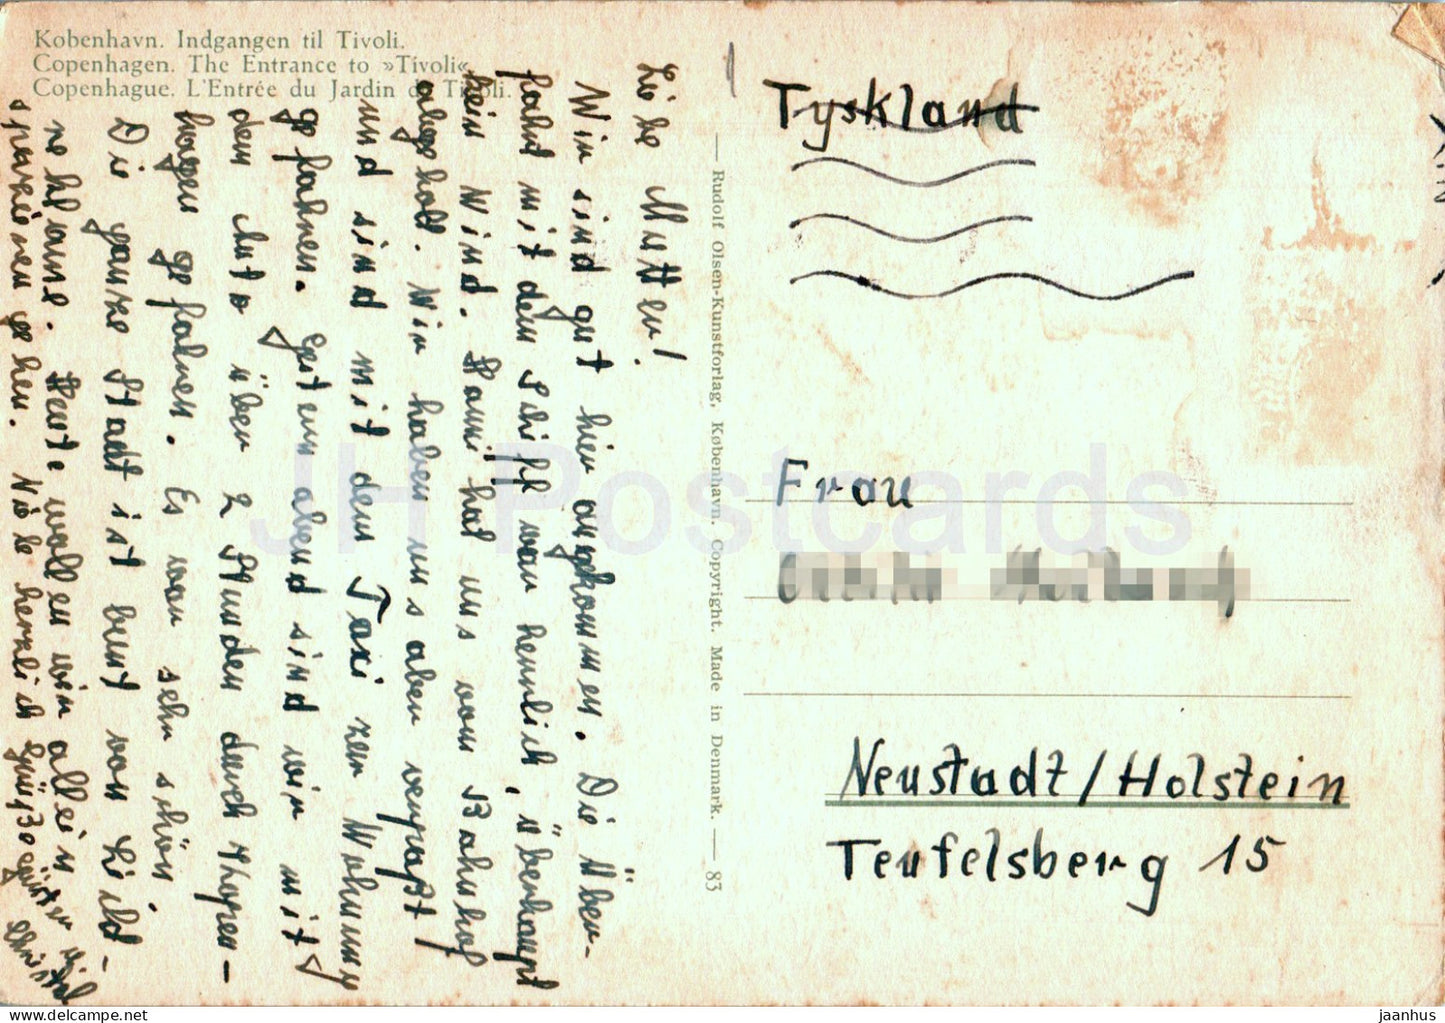 København. Indgangen til Tivoli.
Copenhagen. The Entrance to »Tivoli«.
Copenhague. L'Entrée du Jardin de Tivoli.
Liebe Mutter!
Wir sind gut hier angekommen. Die Über-
fahrt mit dem Schiff war herrlich, überhaupt
kein Wind. Hanni hat uns vom Bahnhof
abgeholt. Wir haben uns aber verpaßt
und sind mit dem Taxi zur Wohnung
gefahren. Gestern abend sind wir mit
dem Auto über 2 Stunden durch Kopen-
hagen gefahren. Es war sehr schön.
Die ganze Stadt ist bunt von Licht-
reklame. Heute wollen wir allein
spazieren gehen. Viele herzlich Grüße
Rudolf Olsen-Kunstforlag, København. Copyright. Made in Denmark. — 83
Tyskland
Frau
Neustadt/Holstein
Teufelsberg 15
JH Postcards
www.delcampe.net
jaanhus